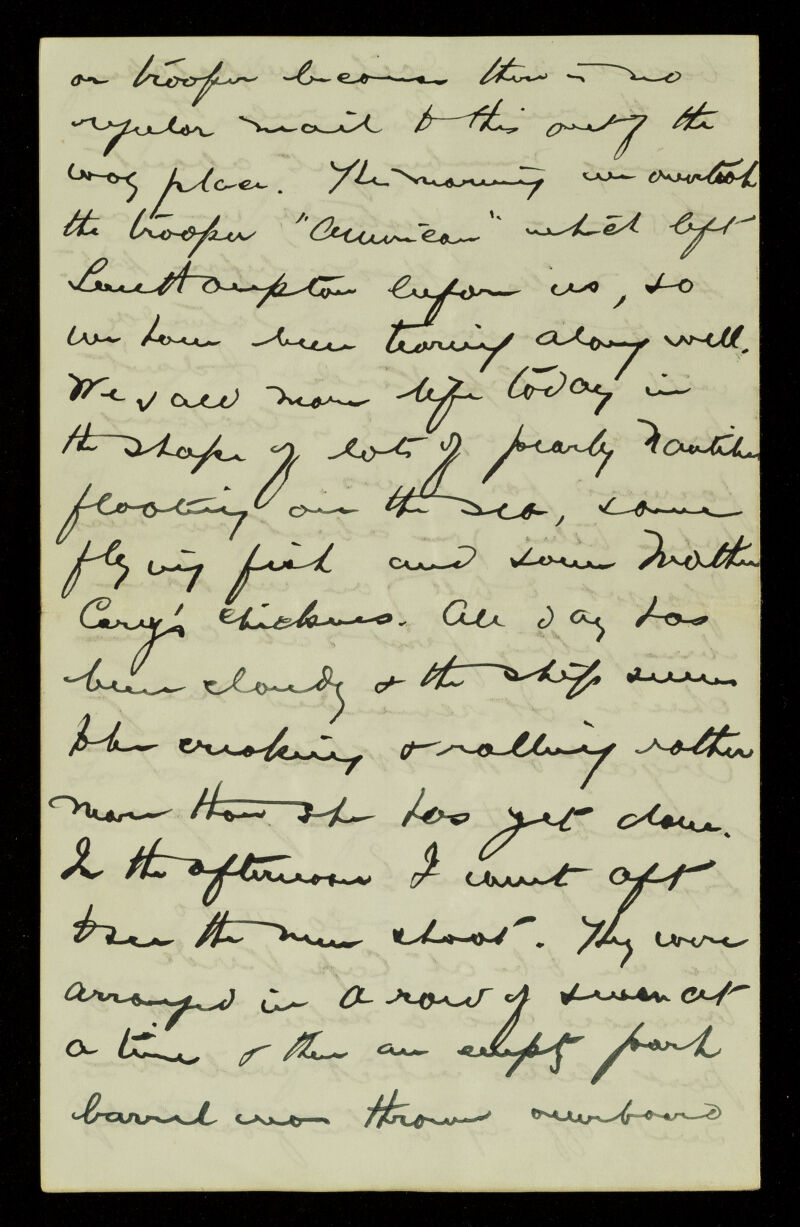 or trooper because there is no
regular mail to this out of the
way place. This morning we overtook
the trooper "American" which left
Southampton before us, so
we have been tearing along well.
We saw more life today in
the shape of lots of pearly Nautilus
floating on the sea, some
flying fish and some Mother
Cary's chickens. All day has
been cloudy & the ship seems
to be creaking & rolling rather
more than she has yet done.
In the afternoon I went aft
to see the men shoot. They were
arranged in a row of seven at
a time & then an empty pork
barrel was thrown overboard